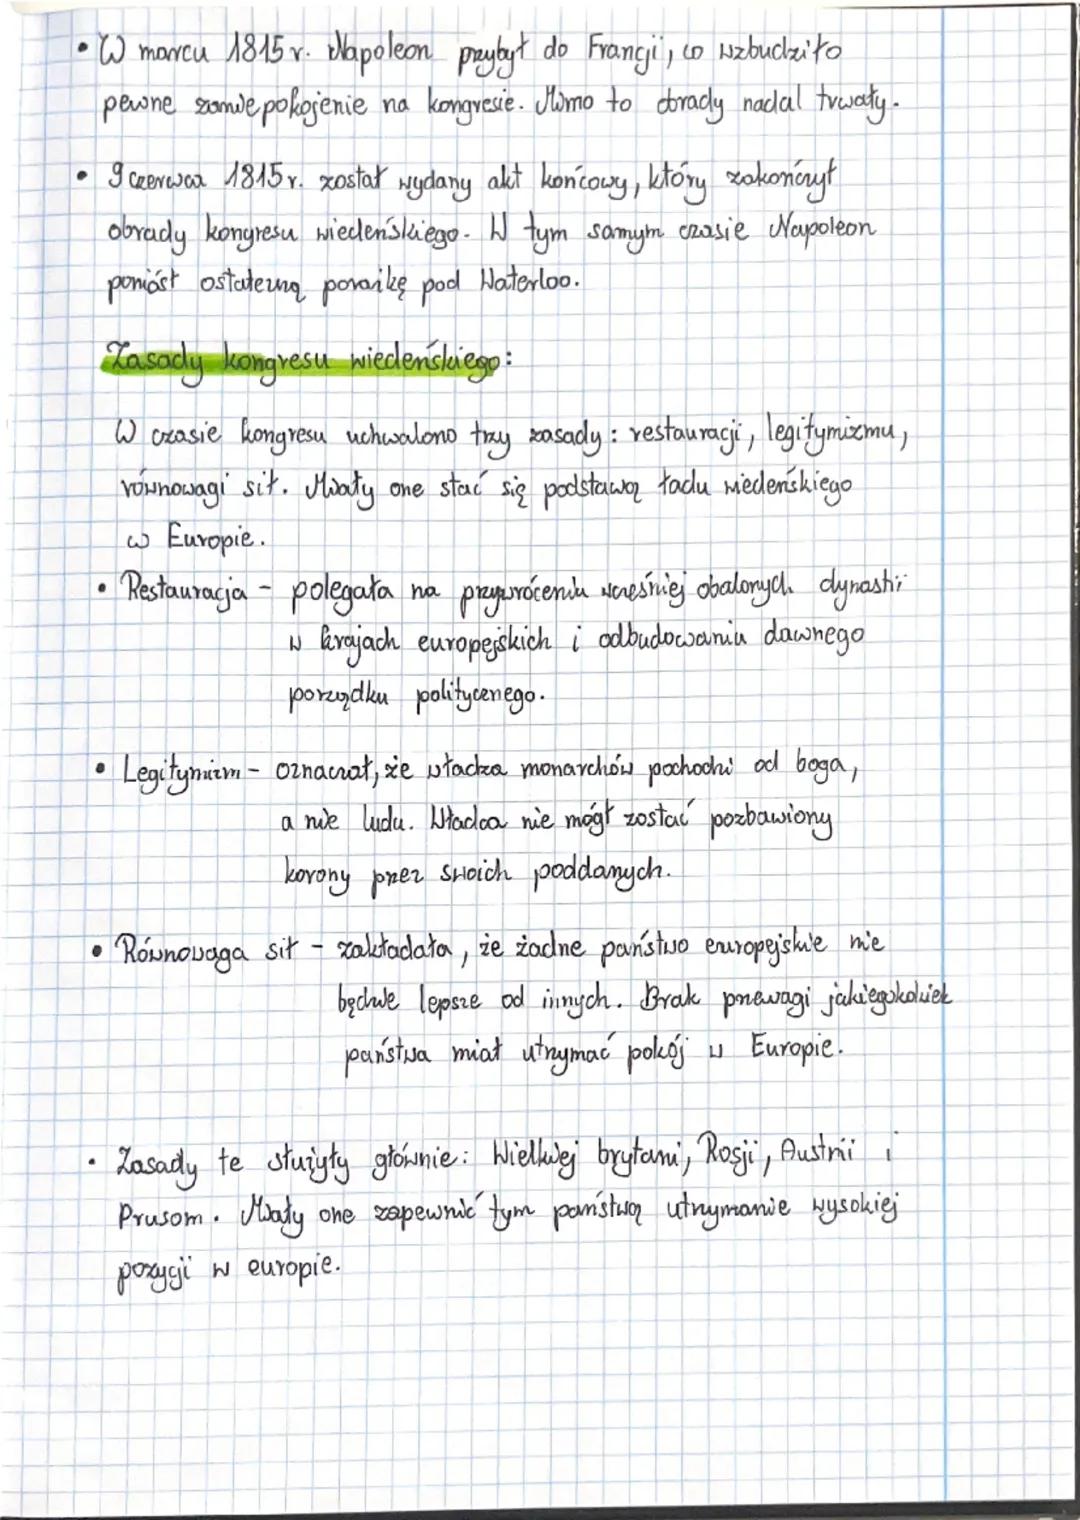 • W marcu 1815 r. Napoleon przybył do Francji, co wzbudziło
pewne zaniepokojenie na kongresie. Mimo to obrady nadal trwały.
• 9 czerwca 1815 r. został wydany akt końcowy, który zakończył
obrady kongresu wiedeńskiego. W tym samym czasie Napoleon
poniósł ostateczną porażkę pod Waterloo.
Zasady kongresu wiedeńskiego:
W czasie kongresu uchwalono trzy zasady: restauracji, legitymizmu,
równowagi sił. Miały one stać się podstawą ładu wiedeńskiego
w Europie.
• Restauracja - polegała na przywróceniu wcześniej obalonych dynastii
w krajach europejskich i odbudowaniu dawnego
porządku politycznego.
• Legitymizm - oznaczał, że władza monarchów pochodzi od boga,
a nie ludu. Władca nie mógł zostać pozbawiony
korony przez swoich poddanych.
• Równowaga sił - zakładała, że żadne państwo europejskie nie
będzie lepsze od innych. Brak przewagi jakiegokolwiek
państwa miał utrzymać pokój w Europie.
• Zasady te służyły głównie: Wielkiej brytani, Rosji, Austrii i
Prusom. Miały one zapewnić tym państwą utrzymanie wysokiej
pozycji w europie.